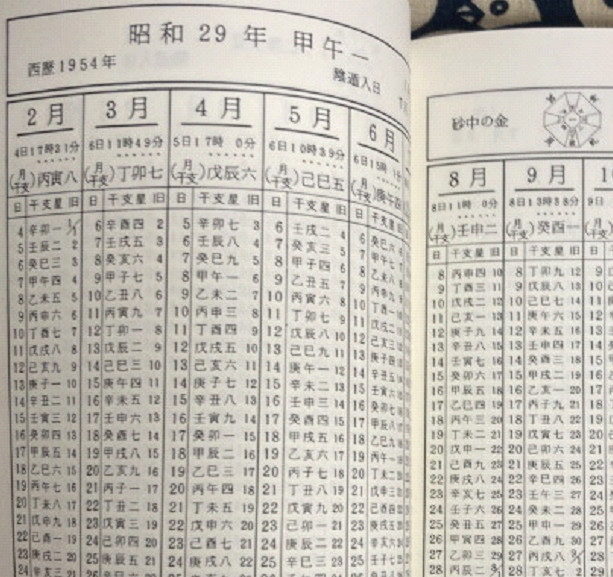 昭和29年 甲午一
西歴1954年
陰遁入日
2月
4日17時31分
(月干支)丙寅八
日 干支星 旧
4 辛卯一 1/1
5 壬辰二 2
6 癸巳三 3
7 甲午四 4
8 乙未五 5
9 丙申六 6
10 丁酉七 7
11 戊戌八 8
12 己亥九 9
13 庚子一 10
14 辛丑二 11
15 壬寅三 12
16 癸卯四 13
17 甲辰五 14
18 乙巳六 15
19 丙午七 16
20 丁未八 17
21 戊申九 18
22 己酉一 19
23 庚戌二 20
24 辛亥三 21
3月
6日11時49分
(月干支)丁卯七
日 干支星 旧
6 辛酉四 2
7 壬戌五 3
8 癸亥六 4
9 甲子七 5
10 乙丑八 6
11 丙寅九 7
12 丁卯一 8
13 戊辰二 9
14 己巳三 10
15 庚午四 11
16 辛未五 12
17 壬申六 13
18 癸酉七 14
19 甲戌八 15
20 乙亥九 16
21 丙子一 17
22 丁丑二 18
23 戊寅三 19
24 己卯四 20
25 庚辰五 21
4月
5日17時 0分
(月干支)戊辰六
日 干支星 旧
5 辛卯七 3
6 壬辰八 4
7 癸巳九 5
8 甲午一 6
9 乙未二 7
10 丙申三 8
11 丁酉四 9
12 戊戌五 10
13 己亥六 11
14 庚子七 12
15 辛丑八 13
16 壬寅九 14
17 癸卯一 15
18 甲辰二 16
19 乙巳三 17
20 丙午四 18
21 丁未五 19
22 戊申六 20
23 己酉七 21
24 庚戌八 22
5月
6日10時39分
(月干支)己巳五
日 干支星 旧
6 壬戌二 4
7 癸亥三 5
8 甲子四 6
9 乙丑五 7
10 丙寅六 8
11 丁卯七 9
12 戊辰八 10
13 己巳九 11
14 庚午一 12
15 辛未二 13
16 壬申三 14
17 癸酉四 15
18 甲戌五 16
19 乙亥六 17
20 丙子七 18
21 丁丑八 19
22 戊寅九 20
23 己卯一 21
24 庚辰二 22
25 辛巳三 23
6月
6日15時
(月干支)庚午四
日 干支星
6 癸巳六
7 甲午七
8 乙未八
9 丙申九
10 丁酉一
11 戊戌二
12 己亥三
砂中の金
8月
8日11時 0分
(月干支)壬申二
日 干支星 旧
8 丙申四 10
9 丁酉三 11
10 戊戌二 12
11 己亥一 13
12 庚子九 14
13 辛丑八 15
14 壬寅七 16
15 癸卯六 17
16 甲辰五 18
17 乙巳四 19
18 丙午三 20
19 丁未二 21
20 戊申一 22
21 己酉九 23
22 庚戌八 24
23 辛亥七 25
24 壬子六 26
25 癸丑五 27
26 甲寅四 28
27 乙卯三 29
28 丙辰二 8/1
9月
8日13時38分
(月干支)癸酉一
日 干支星 旧
8 丁卯九 12
9 戊辰八 13
10 己巳七 14
11 庚午六 15
12 辛未五 16
13 壬申四 17
14 癸酉三 18
15 甲戌二 19
16 乙亥一 20
17 丙子九 21
18 丁丑八 22
19 戊寅七 23
20 己卯六 24
21 庚辰五 25
22 辛巳四 26
23 壬午三 27
24 癸未二 28
25 甲申一 29
26 乙酉九 30
27 丙戌八 9/1
28 丁亥七 2